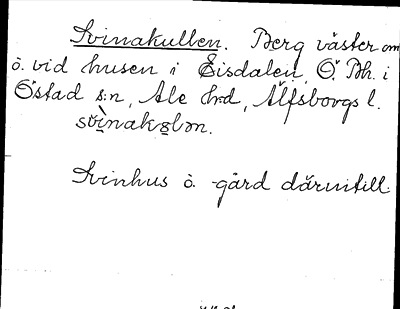 Svinakullen. Berg väster om
o. vid husen i Eisdalen, Ö. Bh. i
Östad s:n, Ale hrd, Älfsborgs l.
Svinhus o. -gård därintill.